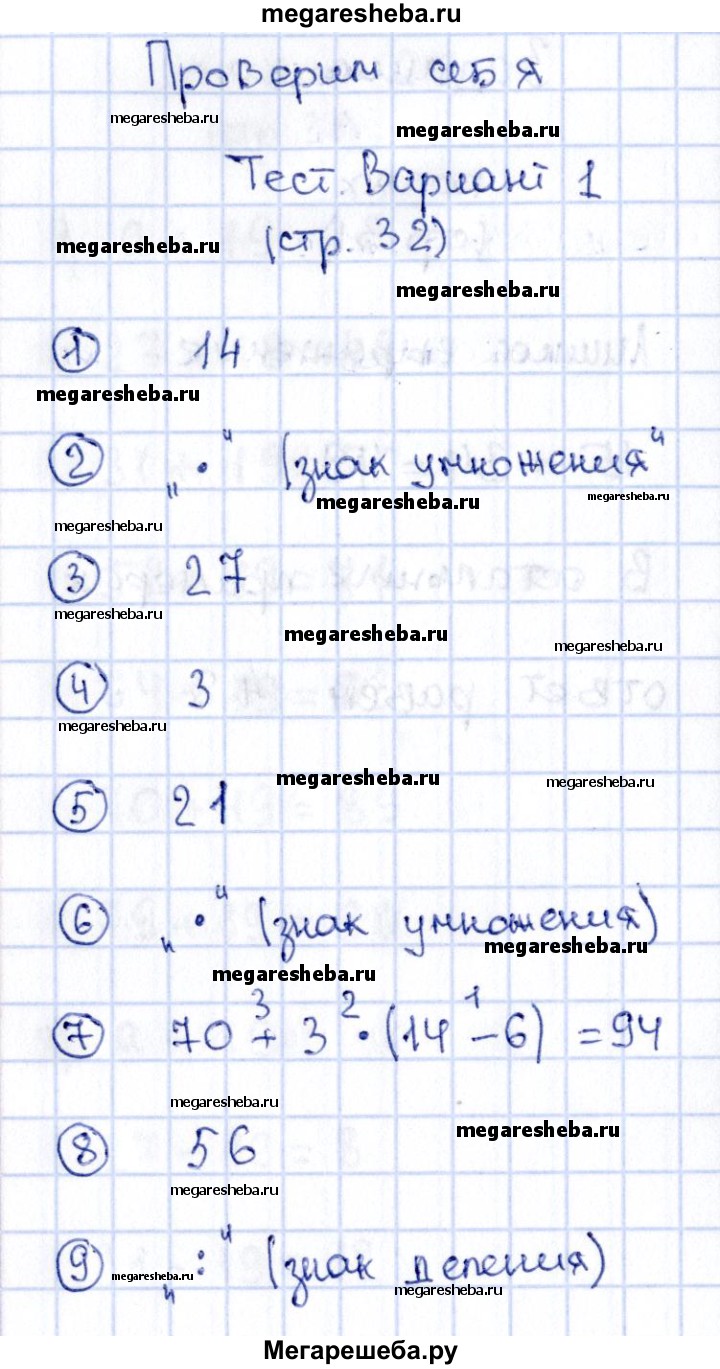 megaresheba.ru
Проверим себя
megaresheba.ru
megaresheba.ru
Тест. Вариант 1
megaresheba.ru (стр. 32)
megaresheba.ru
1 14
megaresheba.ru
2 „ · " (знак умножения"
megaresheba.ru megaresheba.ru
megaresheba.ru
3 27
megaresheba.ru
megaresheba.ru
megaresheba.ru
4 3
megaresheba.ru
megaresheba.ru megaresheba.ru
5 21
6 „ · " (знак умножения)
megaresheba.ru
megaresheba.ru
3 2 1
7 70 + 3 · (14 - 6) = 94
megaresheba.ru
megaresheba.ru
8 56
megaresheba.ru
9 „ : " (знак деления)
megaresheba.ru
megaresheba.ru
Мегарешеба.ру